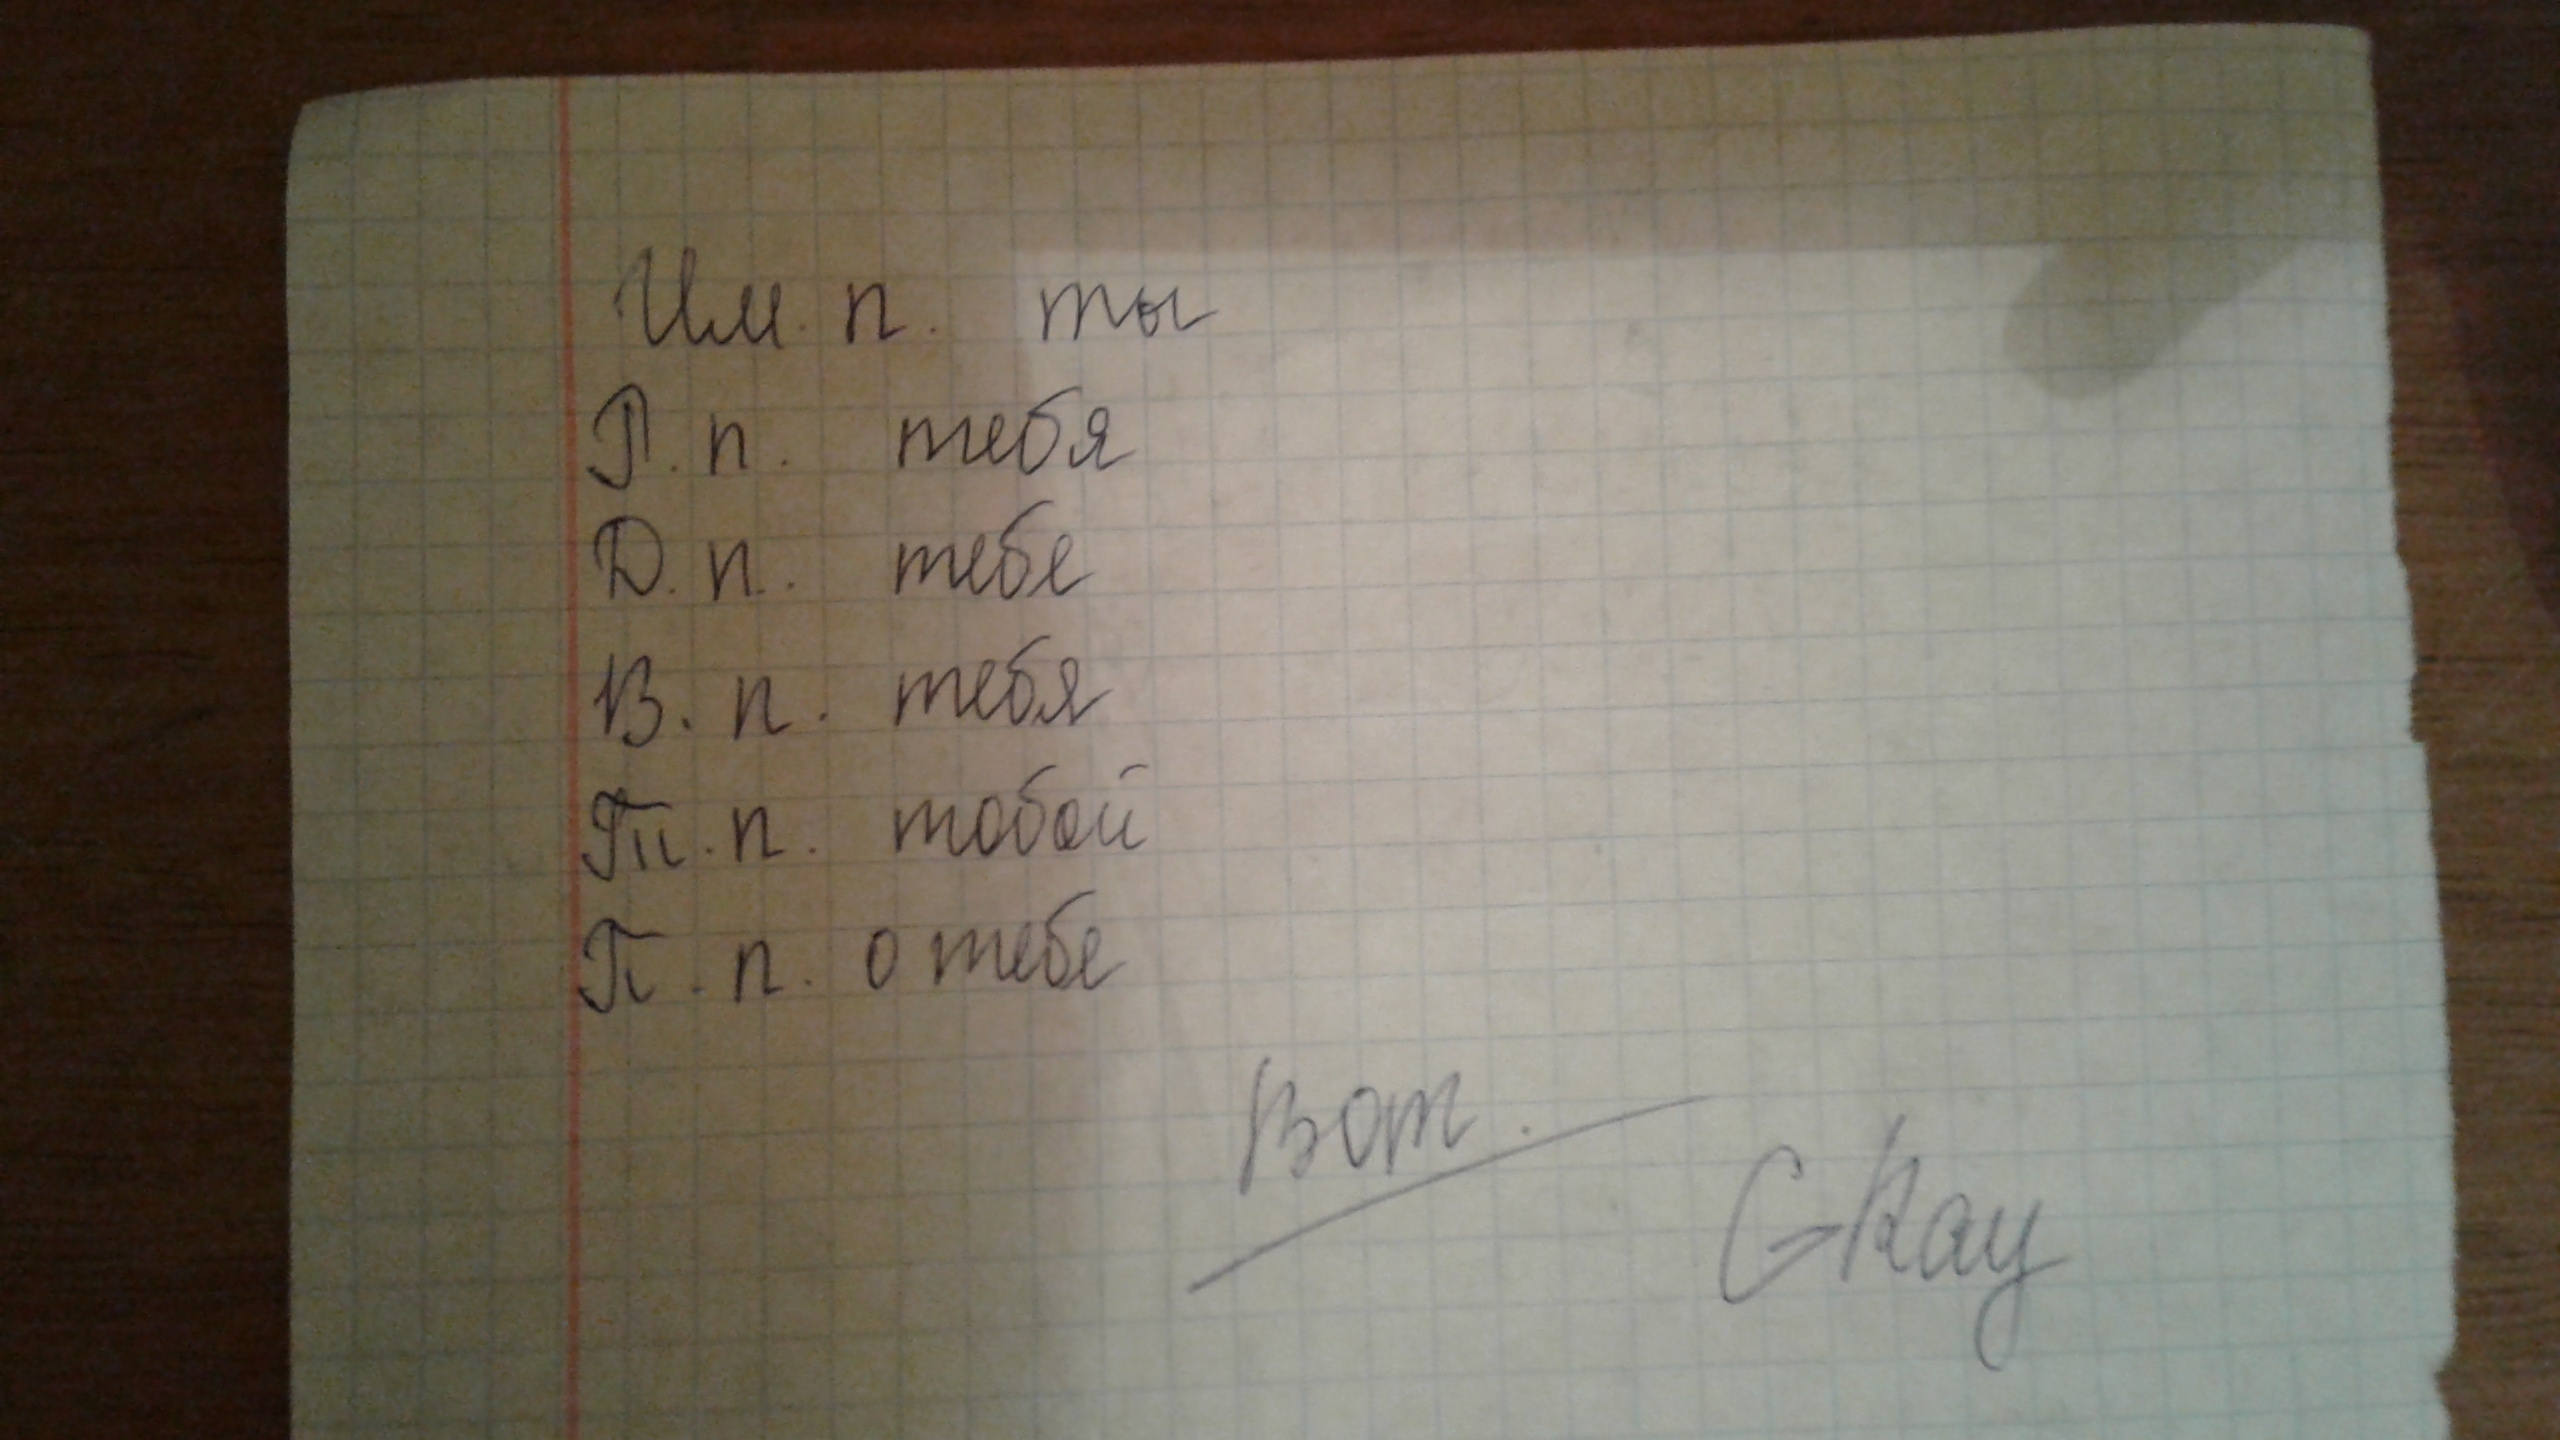 Им. п. ты
Р. п. тебя
Д. п. тебе
В. п. тебя
Тв. п. тобой
П. п. о тебе
Вот.